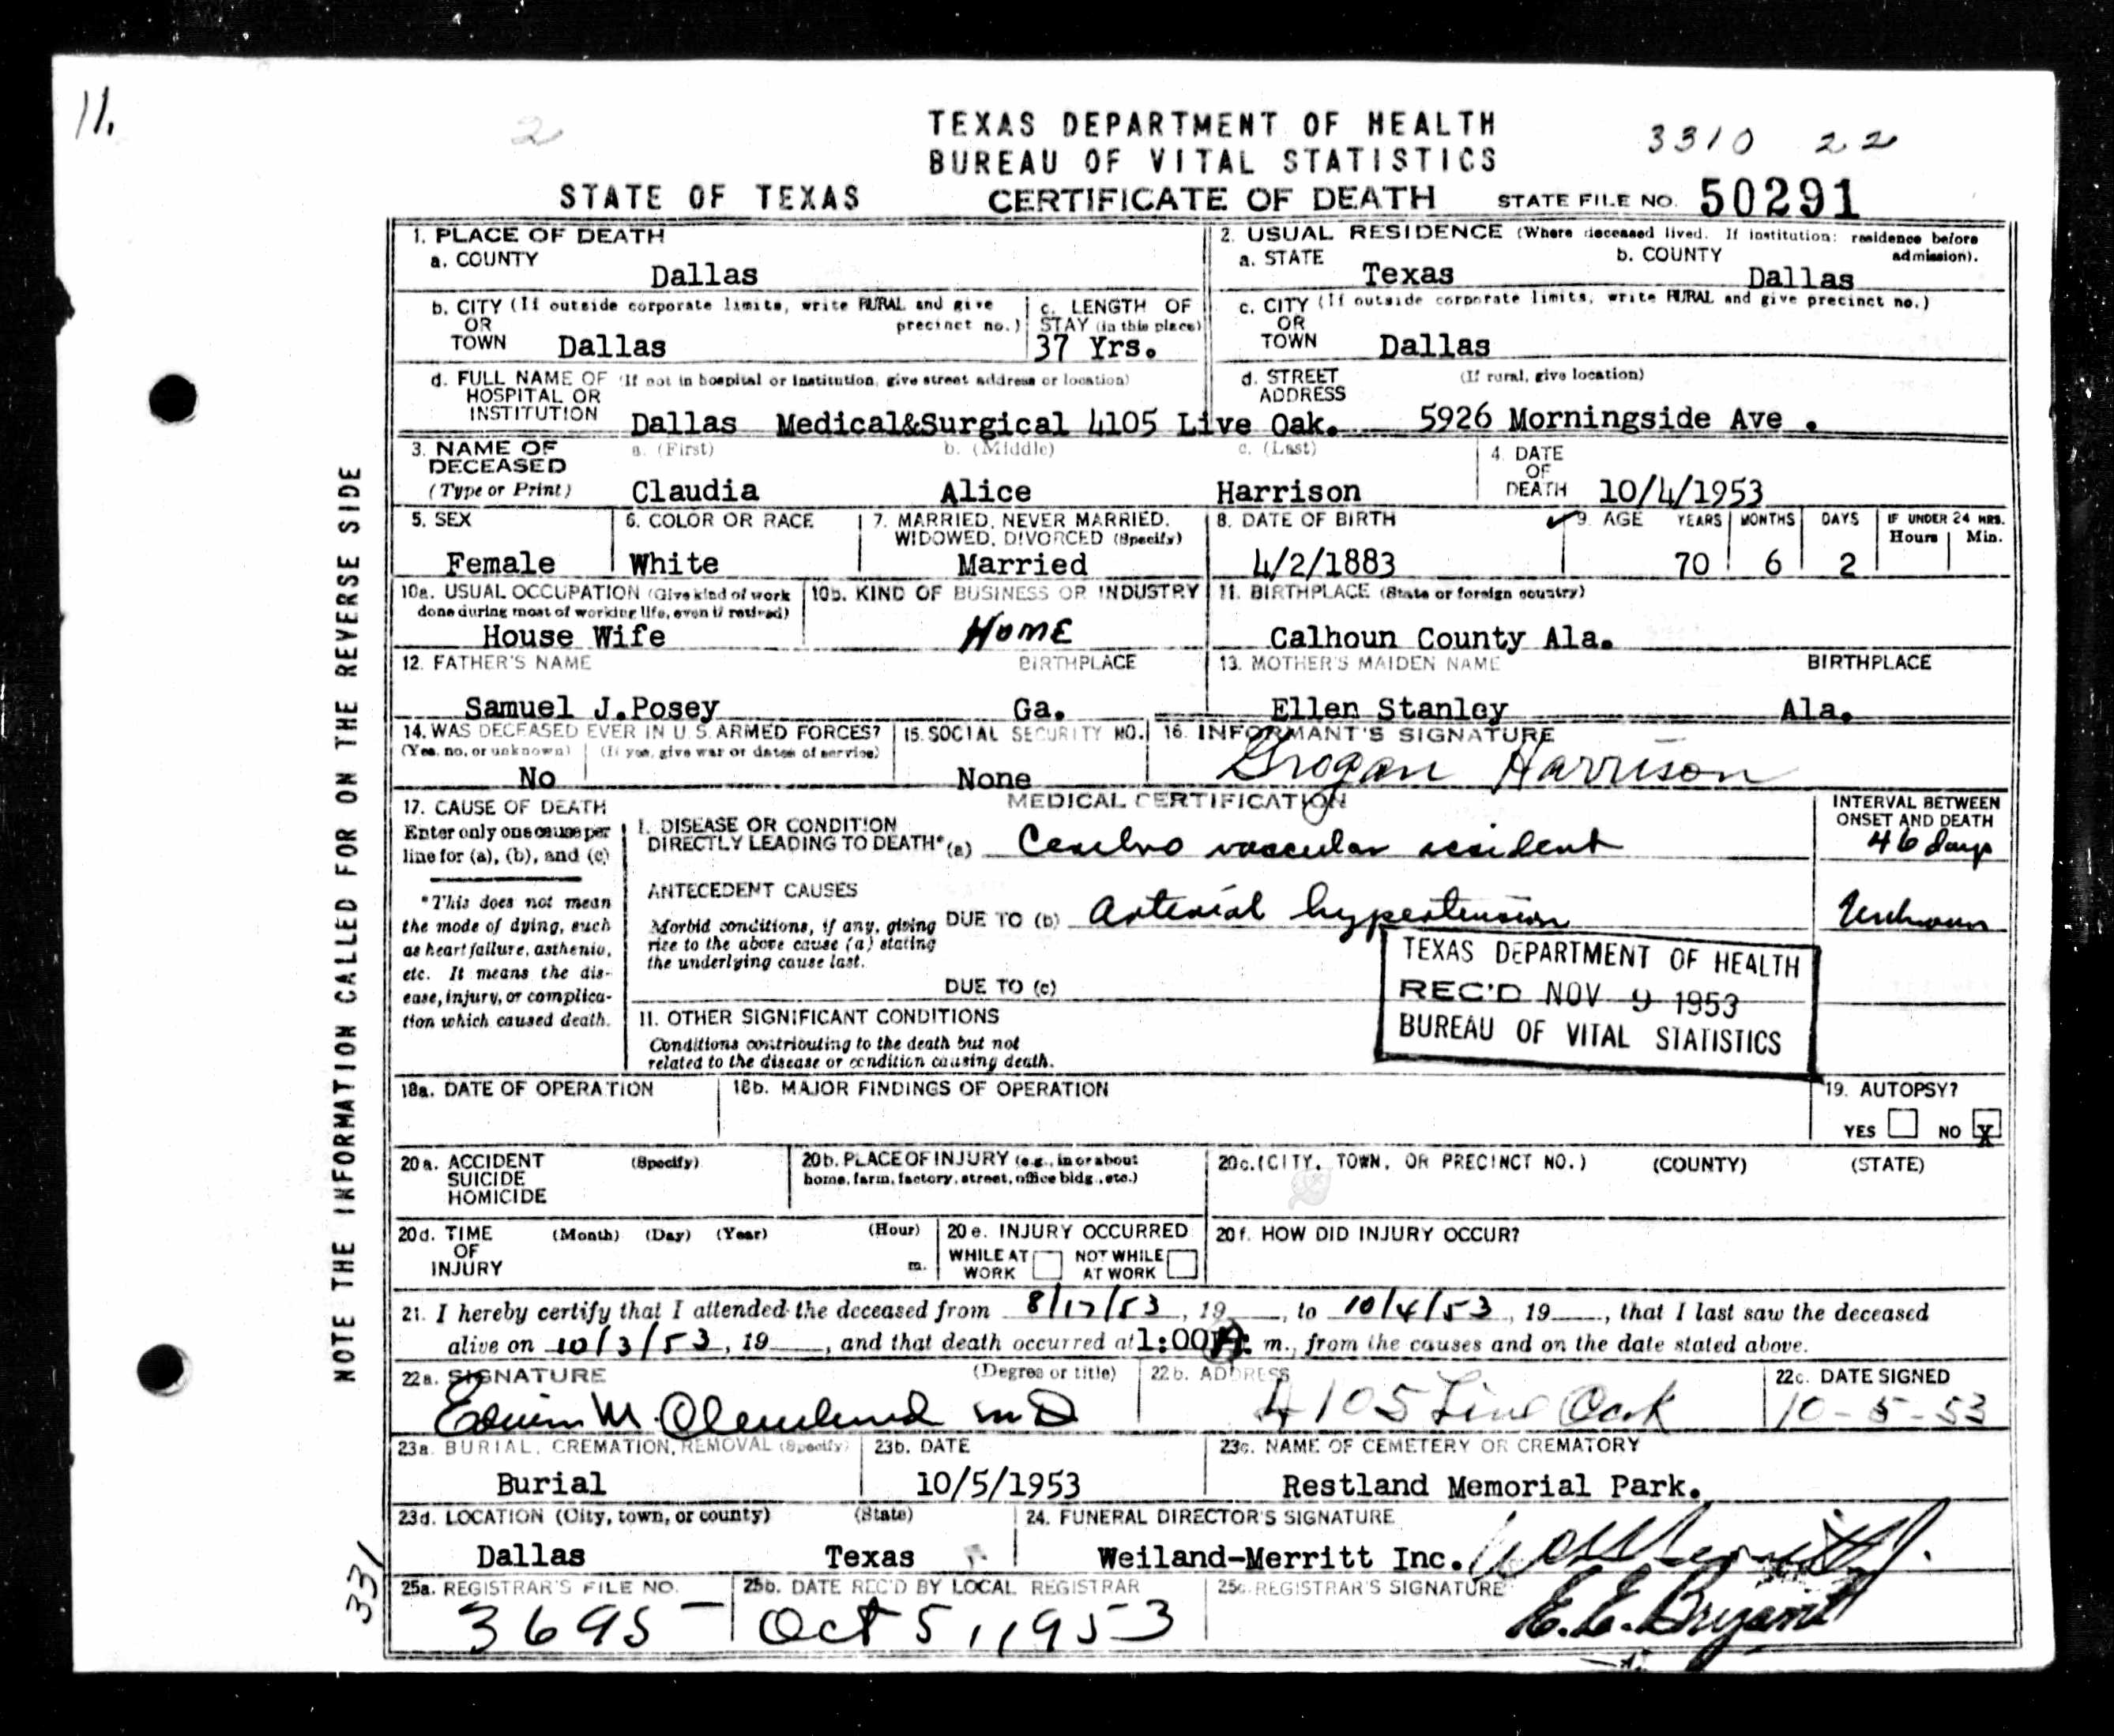 11.
2
TEXAS DEPARTMENT OF HEALTH
BUREAU OF VITAL STATISTICS
3310 22
STATE OF TEXAS CERTIFICATE OF DEATH STATE FILE NO. 50291
NOTE THE INFORMATION CALLED FOR ON THE REVERSE SIDE
331
1. PLACE OF DEATH
a. COUNTY
Dallas
2. USUAL RESIDENCE (Where deceased lived. If institution: residence before admission).
a. STATE
Texas
b. COUNTY
Dallas
b. CITY (If outside corporate limits, write RURAL and give precinct no.)
OR
TOWN Dallas
c. LENGTH OF
STAY (in this place)
37 Yrs.
c. CITY (If outside corporate limits, write RURAL and give precinct no.)
OR
TOWN Dallas
d. FULL NAME OF (If not in hospital or institution, give street address or location)
HOSPITAL OR
INSTITUTION Dallas Medical&Surgical 4105 Live Oak.
d. STREET (If rural, give location)
ADDRESS
5926 Morningside Ave .
3. NAME OF DECEASED
(Type or Print)
a. (First) b. (Middle) c. (Last)
Claudia Alice Harrison
4. DATE
OF
DEATH 10/4/1953
5. SEX
Female
6. COLOR OR RACE
White
7. MARRIED, NEVER MARRIED,
WIDOWED, DIVORCED (Specify)
Married
8. DATE OF BIRTH
4/2/1883
9. AGE YEARS MONTHS DAYS IF UNDER 24 HRS.
Hours Min.
70 6 2
10a. USUAL OCCUPATION (Give kind of work
done during most of working life, even if retired)
House Wife
10b. KIND OF BUSINESS OR INDUSTRY
HOME
11. BIRTHPLACE (State or foreign country)
Calhoun County Ala.
12. FATHER'S NAME BIRTHPLACE
Samuel J.Posey Ga.
13. MOTHER'S MAIDEN NAME BIRTHPLACE
Ellen Stanley Ala.
14. WAS DECEASED EVER IN U.S. ARMED FORCES?
(Yes, no, or unknown) (If yes, give war or dates of service)
No
15. SOCIAL SECURITY NO.
None
16. INFORMANT'S SIGNATURE
Grogan Harrison
MEDICAL CERTIFICATION
17. CAUSE OF DEATH
Enter only one cause per
line for (a), (b), and (c)
*This does not mean
the mode of dying, such
as heart failure, asthenia,
etc. It means the dis-
ease, injury, or complica-
tion which caused death.
I. DISEASE OR CONDITION
DIRECTLY LEADING TO DEATH* (a) Cerebro vascular accident
INTERVAL BETWEEN
ONSET AND DEATH
46 days
ANTECEDENT CAUSES
Morbid conditions, if any, giving
rise to the above cause (a) stating
the underlying cause last.
DUE TO (b) Arterial hypertension
Unknown
DUE TO (c)
TEXAS DEPARTMENT OF HEALTH
REC'D NOV 9 1953
BUREAU OF VITAL STATISTICS
II. OTHER SIGNIFICANT CONDITIONS
Conditions contributing to the death but not
related to the disease or condition causing death.
18a. DATE OF OPERATION
18b. MAJOR FINDINGS OF OPERATION
19. AUTOPSY?
YES NO X
20a. ACCIDENT (Specify)
SUICIDE
HOMICIDE
20b. PLACE OF INJURY (e.g., in or about
home, farm, factory, street, office bldg., etc.)
20c. (CITY, TOWN, OR PRECINCT NO.) (COUNTY) (STATE)
20d. TIME (Month) (Day) (Year) (Hour)
OF
INJURY m.
20e. INJURY OCCURRED
WHILE AT WORK NOT WHILE AT WORK
20f. HOW DID INJURY OCCUR?
21. I hereby certify that I attended the deceased from 8/17/53, 19 , to 10/4/53, 19 , that I last saw the deceased
alive on 10/3/53, 19 , and that death occurred at 1:00 A. m., from the causes and on the date stated above.
22a. SIGNATURE (Degree or title)
Edwin M. Cleveland MD
22b. ADDRESS
4105 Live Oak
22c. DATE SIGNED
10-5-53
23a. BURIAL, CREMATION, REMOVAL (Specify)
Burial
23b. DATE
10/5/1953
23c. NAME OF CEMETERY OR CREMATORY
Restland Memorial Park.
23d. LOCATION (City, town, or county) (State)
Dallas Texas
24. FUNERAL DIRECTOR'S SIGNATURE
Weiland-Merritt Inc.
25a. REGISTRAR'S FILE NO.
3695
25b. DATE REC'D BY LOCAL REGISTRAR
Oct 5, 1953
25c. REGISTRAR'S SIGNATURE
E. E. Bryant